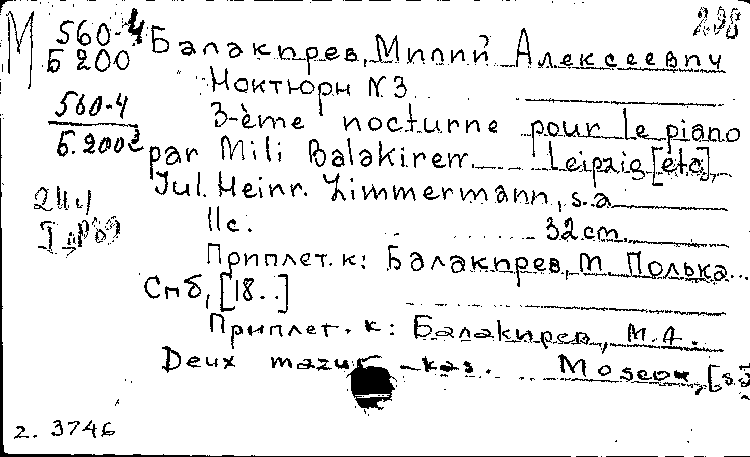 М 560-4 Балакирев, Милий Алексеевич 298
Б 200
Ноктюрн N 3
560-4 3-ème nocturne pour le piano
Б.200 par Mili Balakirew. Leipzig [etc],
Jul. Heinr. Zimmermann, s.a
11с. 32cm.
Приплет. к: Балакирев, М. Полька...
Спб, [18..]
Приплет. к: Балакирев, М.А.
Deux mazurkas. Moscou, [s.
2. 3746